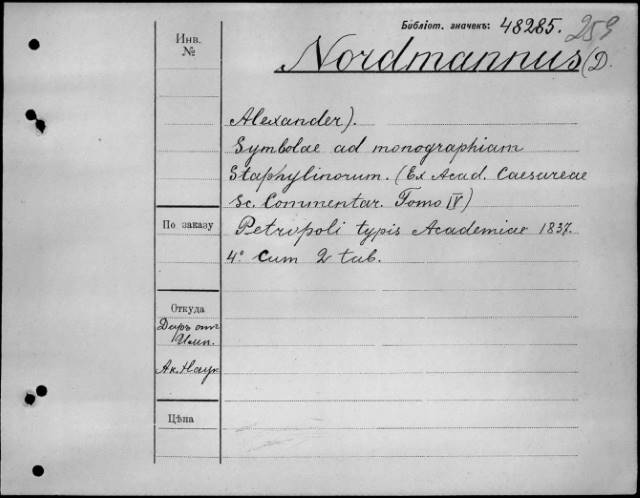 Библіот. значекъ: 48285. 259
Инв.
№
Nordmannus (D.
Alexander).
Symbolae ad monographiam
Staphylinorum. (Ex Acad. Caesareae
Sc. Commentar. Tomo IV)
По заказу
Petropoli typis Academiae 1837.
4º cum 2 tab.
Откуда
Даръ отъ
Имп.
Ак. Наук
Цѣна